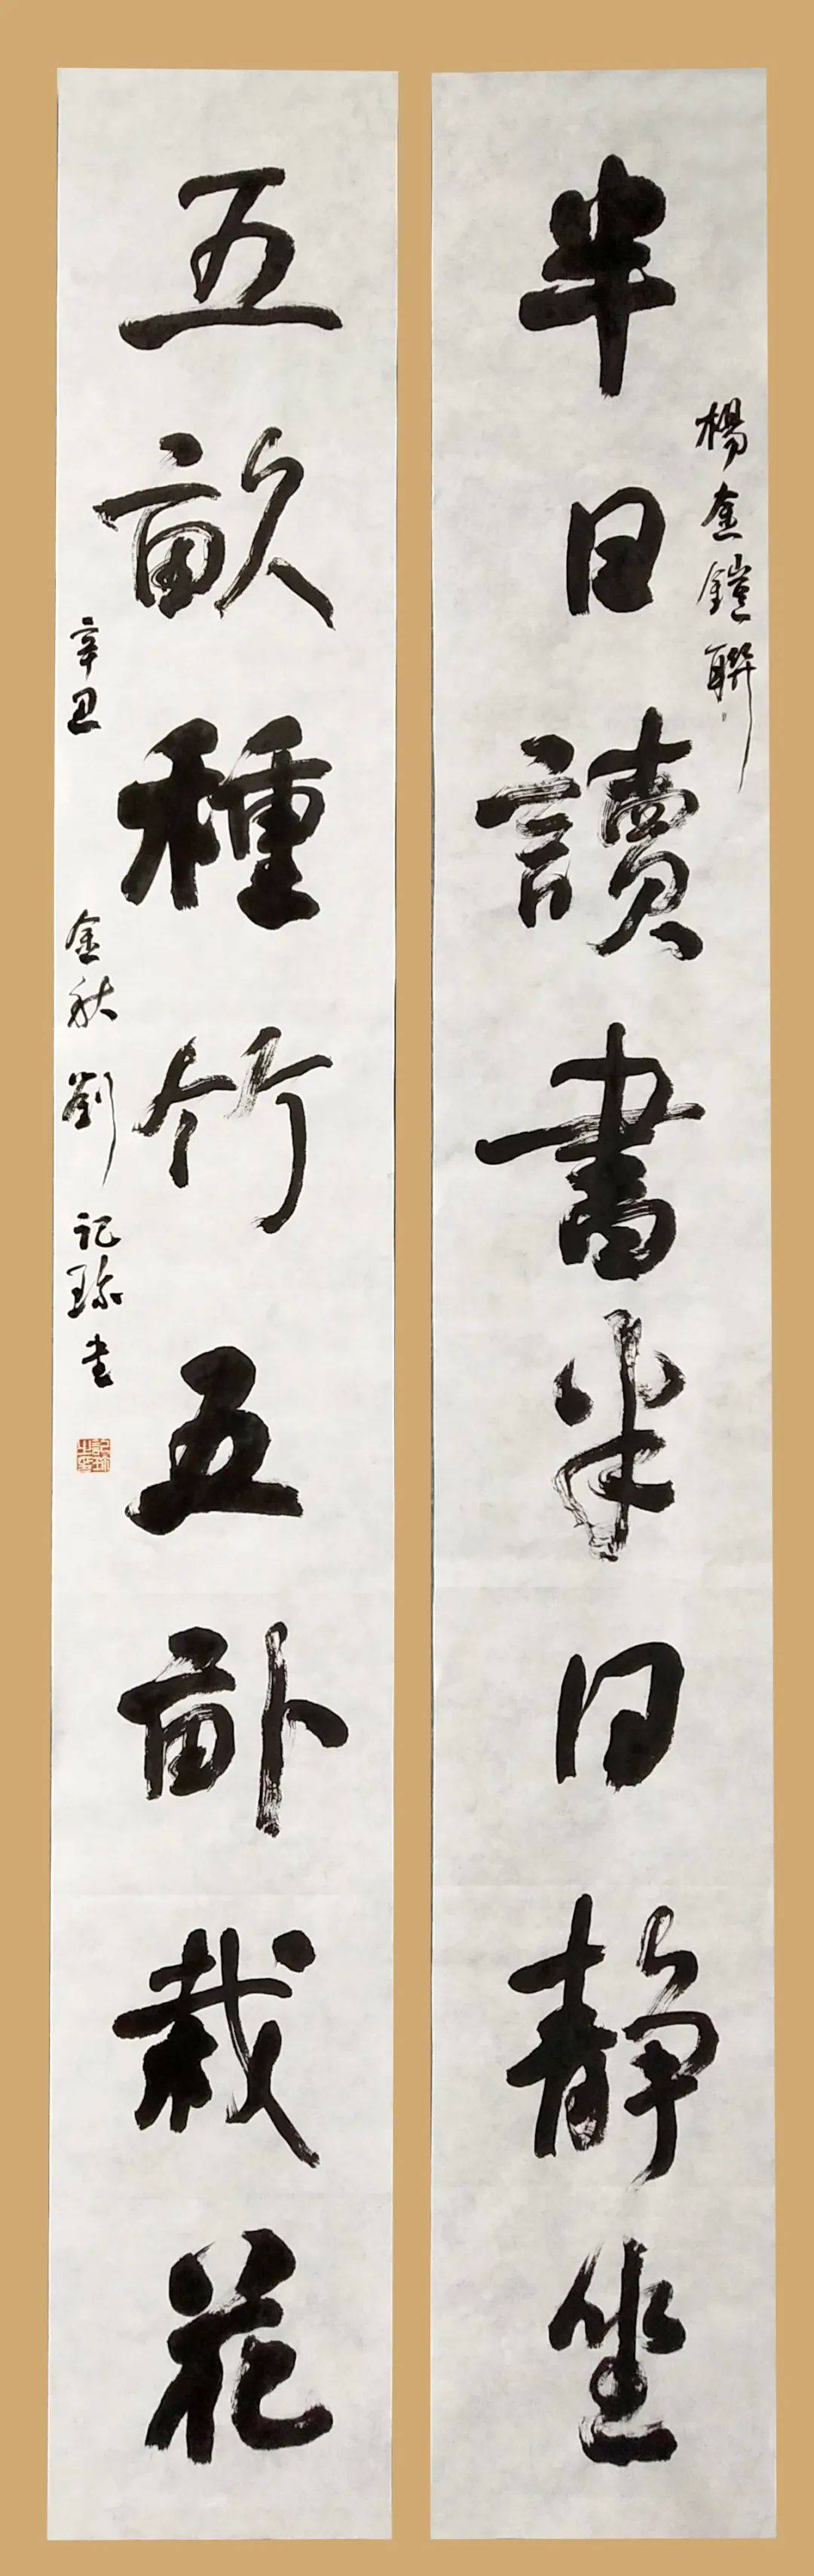 半日讀書半日静坐
楊金鎧聯
五畝種竹五畝栽花
辛丑
金秋劉記珍書